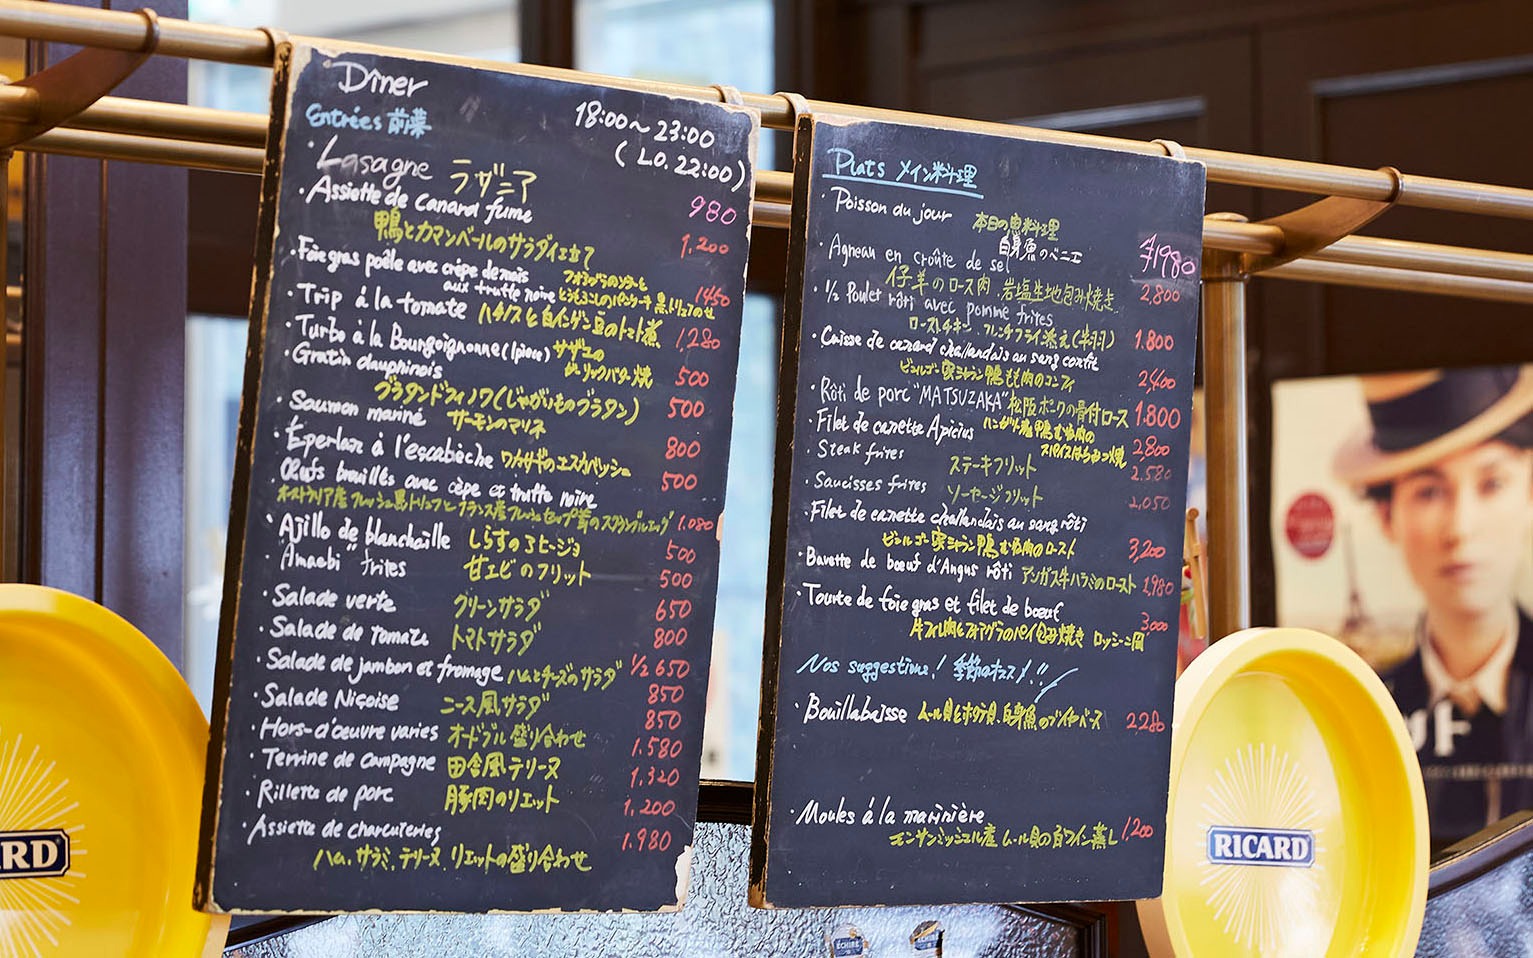 Dîner
18:00～23:00
(L.O. 22:00)
Entrées 前菜
・Lasagne ラザニア 980
・Assiette de canard fume
鴨とカマンベールのサラダ仕立て 1,200
・Foie gras poêle avec crêpe de maïs フォアグラのソテーと
aux truffe noire とうもろこしのパンケーキ 黒トリュフのせ 1450
・Trip à la tomate ハチノスと白インゲン豆のトマト煮 1,280
・Turbo à la Bourgoignonne サザエの
ガーリックバター焼 500
・Gratin dauphinois
グラタンドフィノワ(じゃがいものグラタン) 500
・Saumon mariné サーモンのマリネ 800
・Éperlan à l'escabèche ワカサギのエスカバッシュ 500
・Œufs brouillés avec cèpe et truffe noire
オーストラリア産フレッシュ黒トリュフとフランス産フレッシュセップ茸のスクランブルエッグ 1.080
・Ajillo de blanchaille しらすのアヒージョ 500
・Amaebi frites 甘エビのフリット 500
・Salade verte グリーンサラダ 650
・Salade de tomate トマトサラダ 800
・Salade de jambon et fromage ハムとチーズのサラダ 1/2 650
850
・Salade Niçoise ニース風サラダ 850
・Hors-d'œuvre varies オードブル盛り合わせ 1.580
・Terrine de campagne 田舎風テリーヌ 1,320
・Rillette de porc 豚肉のリエット 1,200
・Assiette de charcuteries 1.980
ハム、サラミ、テリーヌ リエットの盛り合わせ
Plats メイン料理
・Poisson du jour 本日の魚料理
白身魚のベニエ ¥1980
・Agneau en croûte de sel
仔羊のロース肉 岩塩生地包み焼き 2,800
・1/2 Poulet rôti avec pomme frites
ローストチキン フレンチフライ添え(半羽) 1.800
・Cuisse de canard challandais au sang confit
ビュルゴー家シャラン鴨もも肉のコンフィ 2400
・Rôti de porc "MATSUZAKA" 松阪ポークの骨付ロース 1.800
・Filet de canette Apicius ハンガリー産鴨むね肉の
スパイスはちみつ焼 2,800
・Steak frites ステーキフリット 2.580
・Saucisses frites ソーセージフリット 2,050
・Filet de canette challandais au sang rôti
ビュルゴー家シャラン鴨むね肉のロースト 3,200
・Bavette de bœuf d'Angus rôti アンガス牛ハラミのロースト 1,980
・Tourte de foie gras et filet de bœuf 3,000
牛フィレ肉とフォアグラのパイ包み焼き ロッシーニ風
Nos suggestions! 季節のオススメ!!
・Bouillabaisse ムール貝とホタテ貝、白身魚のブイヤベース 2280
・Moules à la marinière
モンサンミッシェル産 ムール貝の白ワイン蒸し 1,200
RICARD
RD
ÉCHIRÉ